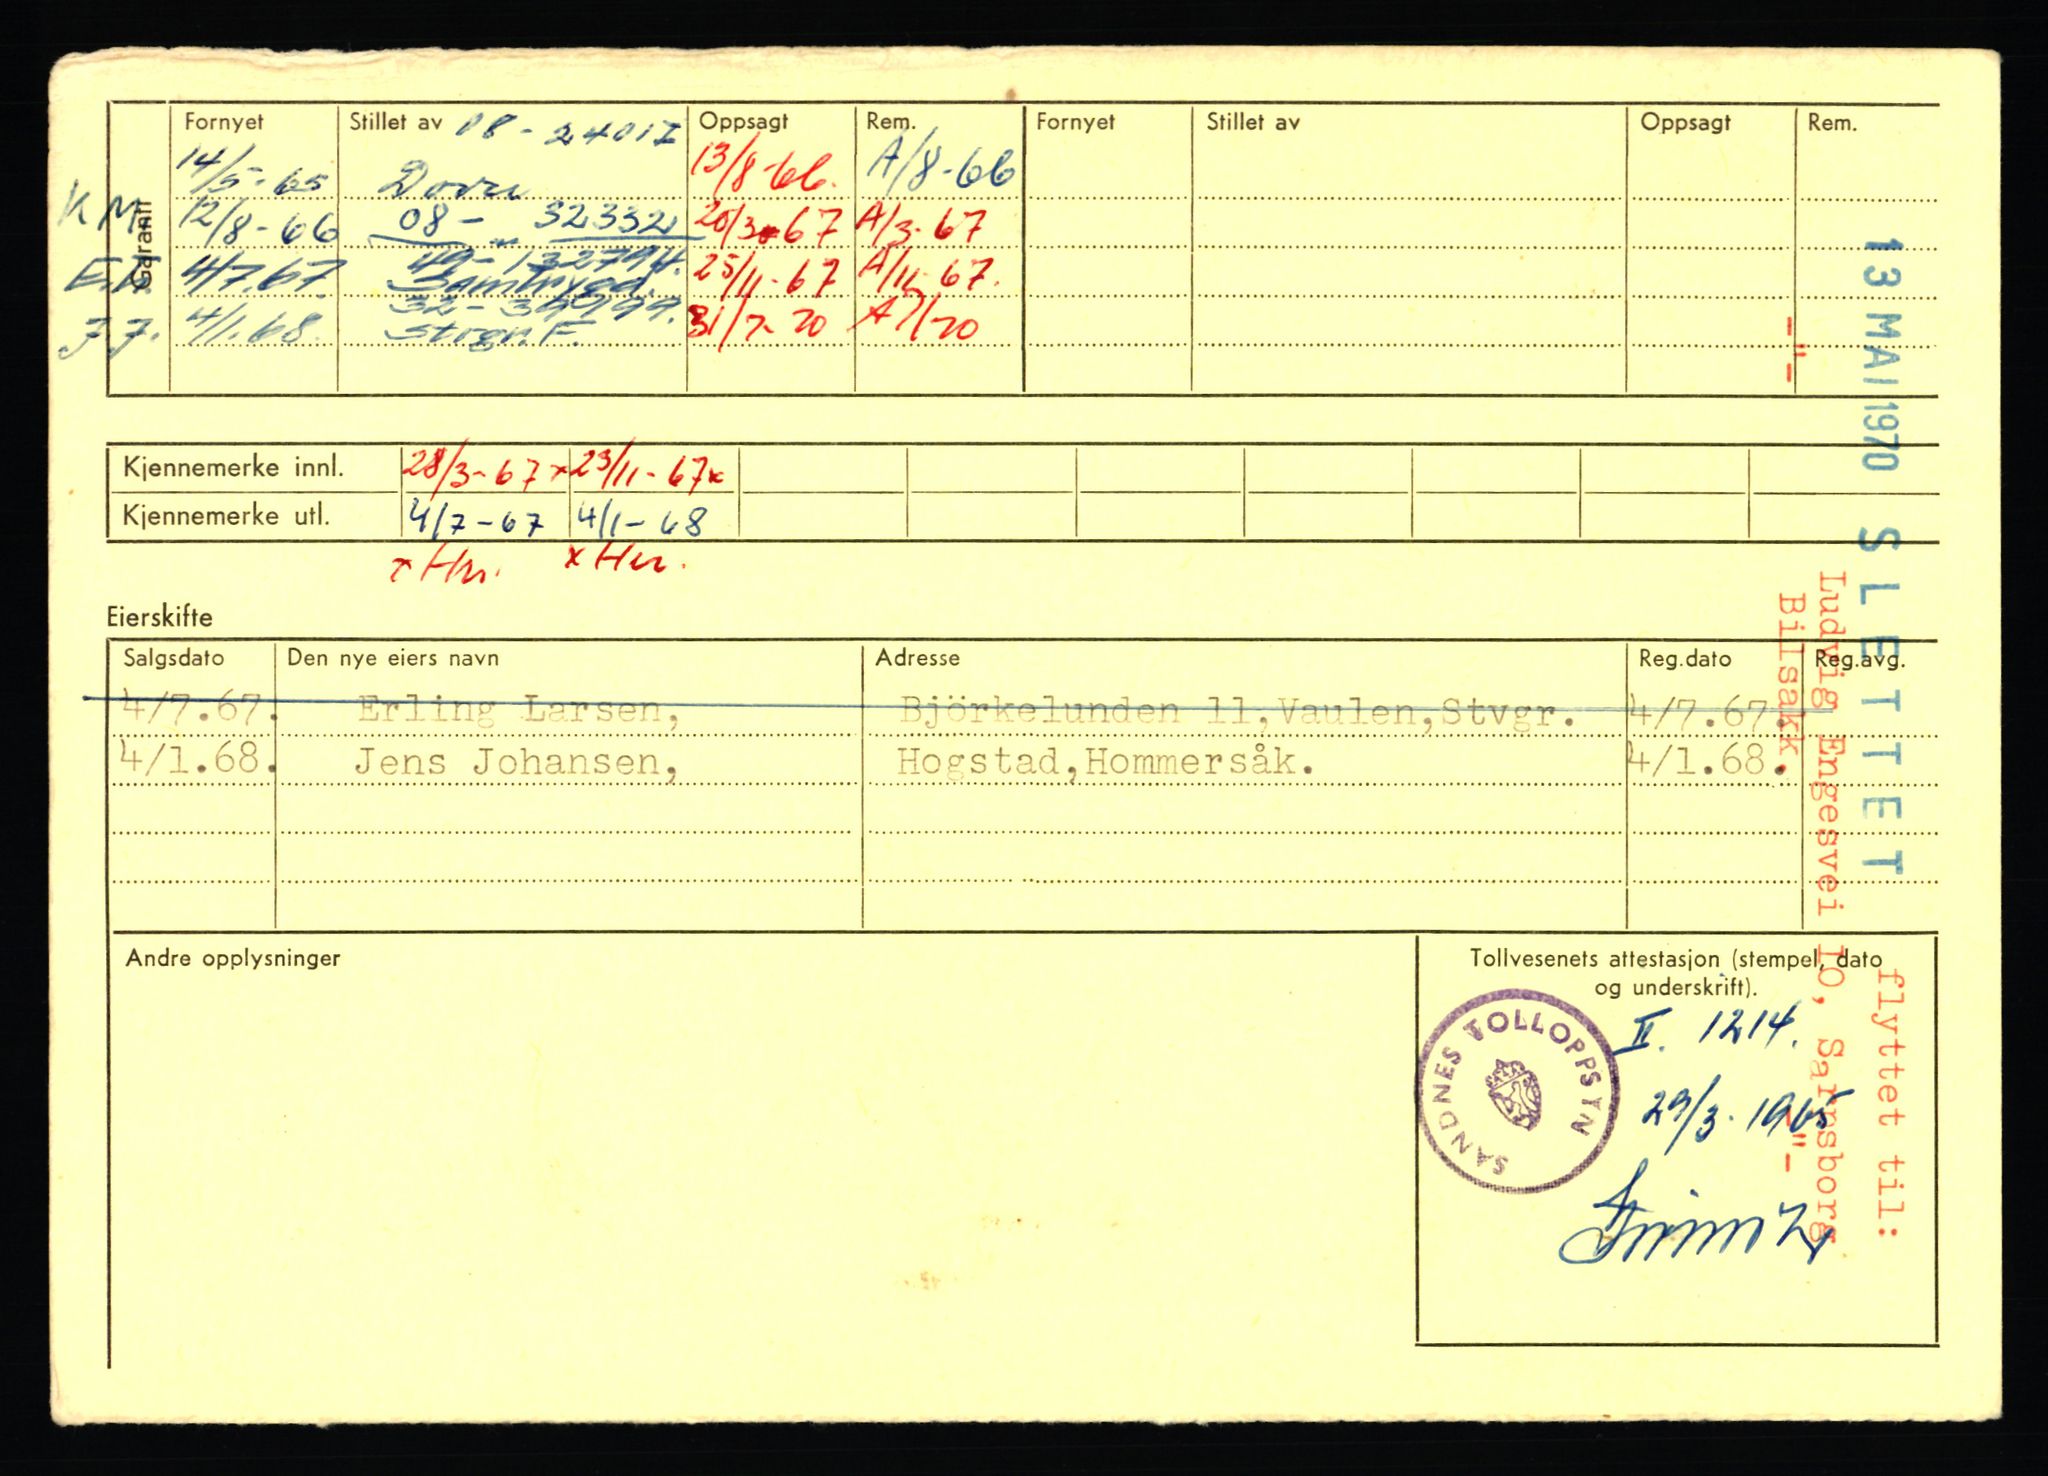 Garanti
Fornyet Stillet av 08 - 24017 Oppsagt Rem. Fornyet Stillet av Oppsagt Rem.
14/5-65 13/8-66. A/8-66
K M. 12/8-66 08 - 32332 20/3-67 A/3-67
E.L. 4/7.67. 49-132794. Samtrygd. 25/11-67 A/11-67.
J.J. 4/1.68. Stvgr. F. 31/7-70 A7/70
Kjennemerke innl. 28/3-67x 23/11-67x
Kjennemerke utl. 4/7-67 4/1-68
Eierskifte
Salgsdato Den nye eiers navn Adresse Reg.dato Reg.avg.
4/7.67. Erling Larsen, Björkelunden 11,Vaulen,Stvgr. 4/7.67.
4/1.68. Jens Johansen, Hogstad,Hommersåk. 4/1.68.
Andre opplysninger
Tollvesenets attestasjon (stempel, dato
og underskrift).
SANDNES TOLLOPPSYN
II. 1214.
29/3. 1965
13 MAI 1970 SLETTET
flyttet til:
Ludvig Engesvei 10, Sarpsborg
-"- Bilsakk. -"-